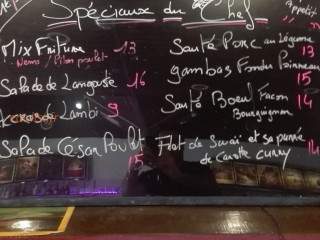 Spéciaux du Chef
Mix Friture 13
Nems / Pilon poulet
Salade de Langouste 16
de Lambi 9
Salade César Poulet
15
Sauté Porc au Légumes
13
gambas Fondu Poireaux
15
Sauté Boeuf Facon 14
Bourguignon
Filet de Swai et sa purée
de carotte curry 14